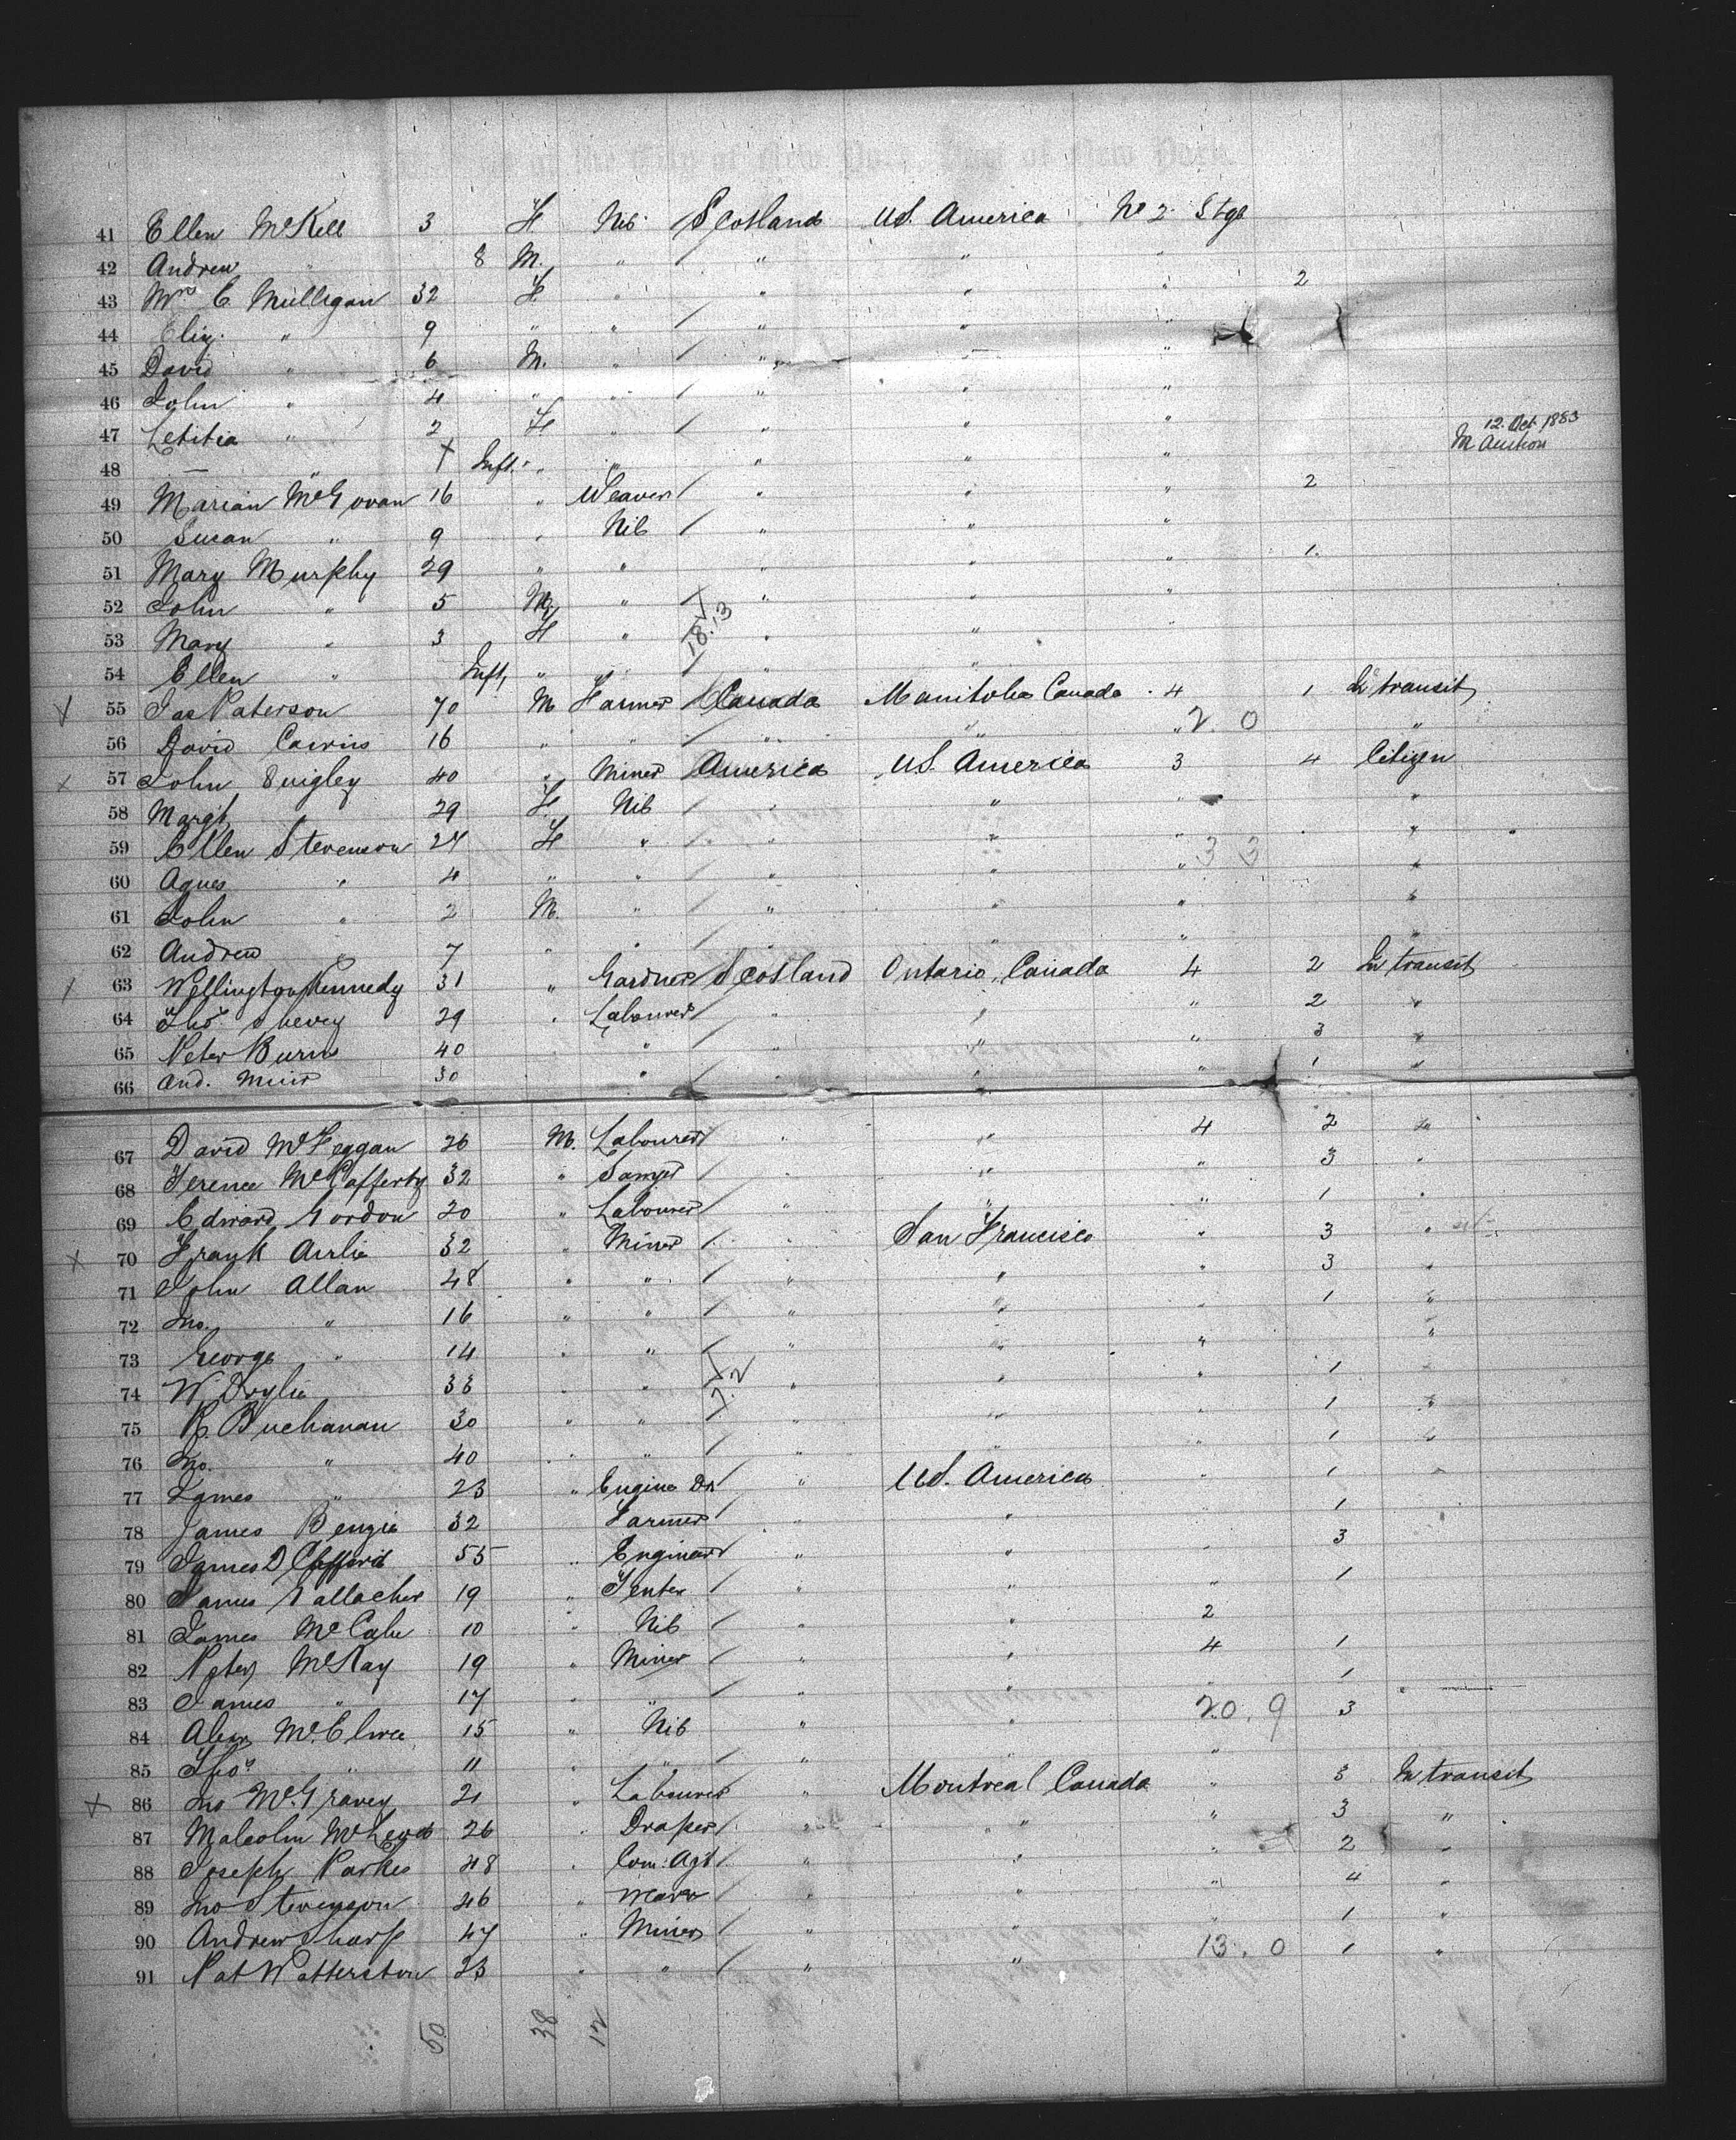 at the City of New York, Port of New York
41 Ellen McKell 3 F Nil Scotland U.S. America No 2 Stge
42 Andrew " 8 M. " " " "
43 Mrs C Milligan 32 F " " " " 2
44 Eliz. " 9 " " " " "
45 David " 6 M. " " " "
46 John " 4 " " " " "
47 Letitia " 2 F. " " " "
12 Oct 1883
48 — " Inft. " " " " "
49 Marian McGovan 16 " Weaver " " " 2
50 Susan " 9 " Nil " " "
51 Mary Murphy 29 " " " " " 1
52 John " 5 M " " " "
53 Mary " 3 F " 18.13 " "
54 Ellen " Inft, " " " "
55 Jas Paterson 70 M Farmer Canada Manitoba Canada 4 1 In transit
56 David Cairns 16 " " " " " 2. 0 "
57 John Quigley 40 " Miner America U.S. America 3 4 Citizen
58 Margt 29 F Nil " " " "
59 Ellen Stevenson 24 F " " " " 3 3 "
60 Agnes " 4 " " " " " "
61 John " 2 M. " " " " "
62 Andrew " 7 " " " " "
63 Wellington Kennedy 31 " Gardner Scotland Ontario, Canada 4 2 In transit
64 Thos Shevey 29 " Labourer " " " 2 "
65 Peter Burns 40 " " " " " 3 "
66 And. Muir 30 " " " " 1 "
67 David McFeggan 26 M. Labourer " " 4 2 "
68 Terence McCafferty 32 " Sawyer " " " 3 "
69 Edward Gordon 20 " Labourer " " " 1 "
70 Frank Airlie 32 " Miner " San Francisco " 3 "
71 John Allan 48 " " " " " 3 "
72 Jno. " 16 " " " " " 1 "
73 George " 14 " " " " " "
74 W Drylie 33 " " 7.2 " " " 1
75 R. Buchanan 30 " " " " " 1 "
76 Jno. " 40 " " " " " 1 "
77 James " 23 " Engine Dr " U.S. America " 1 "
78 James Bengie 32 Farmer " " 1
79 James D Clifford 55 " Engineer " " " 3
80 James Gallacher 19 " Tenter " " " 1
81 James McCabe 10 " Nil " " 2
82 Peter McKay 19 " Miner " " 4 1
83 James " 17 " " " " " 1 "
84 Alexr McElwee 15 " Nil " " 20. 9 3
85 Thos " 11 " " " " "
86 Jno McGravey 21 " Labourer " Montreal Canada " 3 In transit
87 Malcolm McLeod 26 " Draper " " " 3 "
88 Joseph Parkes 48 " Com: Agt " " " 2 "
89 Jno Stevenson 46 " " " " 4 "
90 Andrew Sharp 47 " Miner " " " 1 "
91 Pat Watterston 23 " " " " 13. 0 1 "
50 38 12